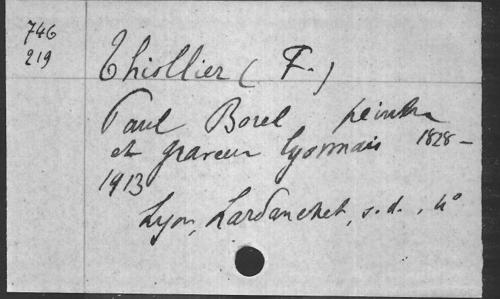 746
219
Thiollier (F.)
Paul Borel peintre
et graveur lyonnais 1828-
1913
Lyon, Lardanchet, s.d., 4°